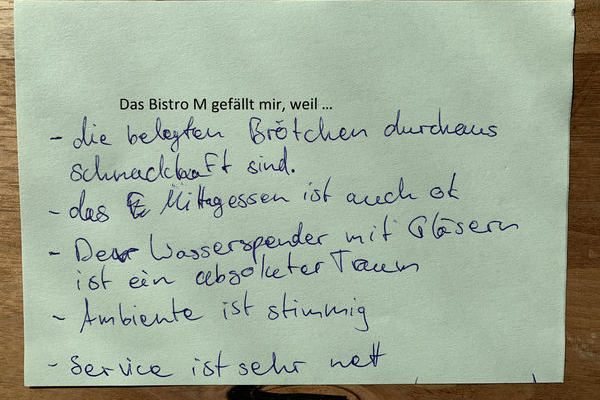 Das Bistro M gefällt mir, weil ...
- die belegten Brötchen durchaus
schmackhaft sind.
- das Mittagessen ist auch ok
- Der Wasserspender mit Gläsern
ist ein absoluter Traum
- Ambiente ist stimmig
- Service ist sehr nett